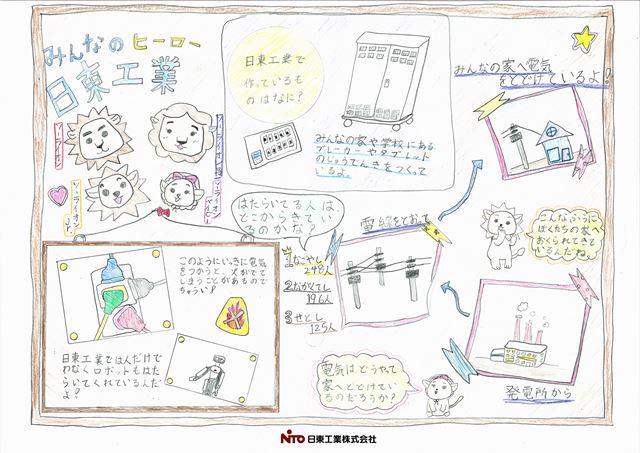 みんなのヒーロー
日東工業
日東工業で
作っているも
のはなに?
みんなの家や学校にある
ブレーカーやタブレット
のじゅうでんきをつくって
いるよ。
みんなの家へ電気
をとどけているよ!
はたらいてる人は、
どこからきてい
るのかな?
1
なごやし
248人
2ながくてし
196人
3せとし
125人
電線をとおって
こんなふうに
ぼくたちの家へ
おくられてきて
いるんだね。
このようにいっきに電気
をつかうと、火がでて
しまうことがあるので
ちゅうい!
日東工業では人だけで
わなくロボットもはた
らいてくれているんだ
よ!
電気はどうやって
家へとどけてい
るのだろうか?
発電所から
NITO 日東工業株式会社